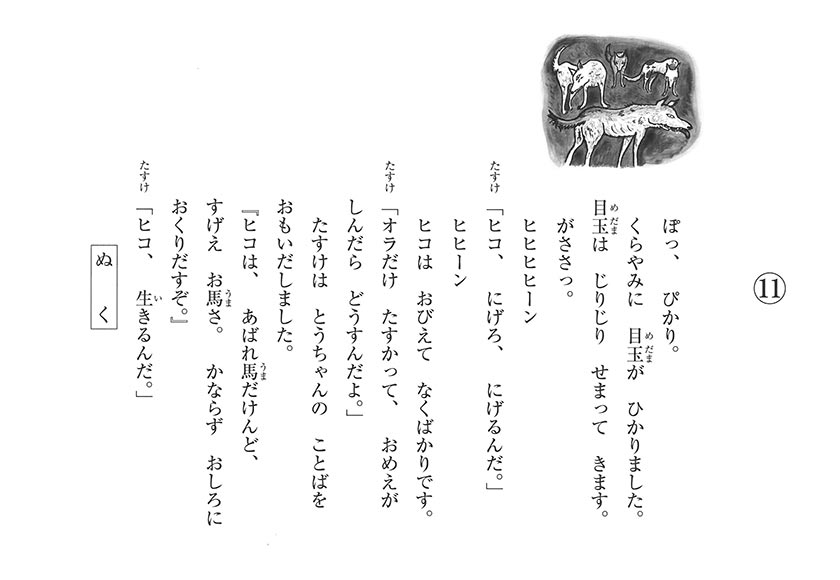 ⑪
ぽっ、　ぴかり。
くらやみに　目玉が　ひかりました。
目玉は　じりじり　せまって　きます。
がささっ。
ヒヒヒヒーン
たすけ「ヒコ、　にげろ、　にげるんだ。」
ヒヒーン
ヒコは　おびえて　なくばかりです。
たすけ「オラだけ　たすかって、　おめえが
しんだら　どうすんだよ。」
たすけは　とうちゃんの　ことばを
おもいだしました。
『ヒコは、　あばれ馬だけんど、
すげえ　お馬さ。　かならず　おしろに
おくりだすぞ。』
たすけ「ヒコ、　生きるんだ。」
ぬく